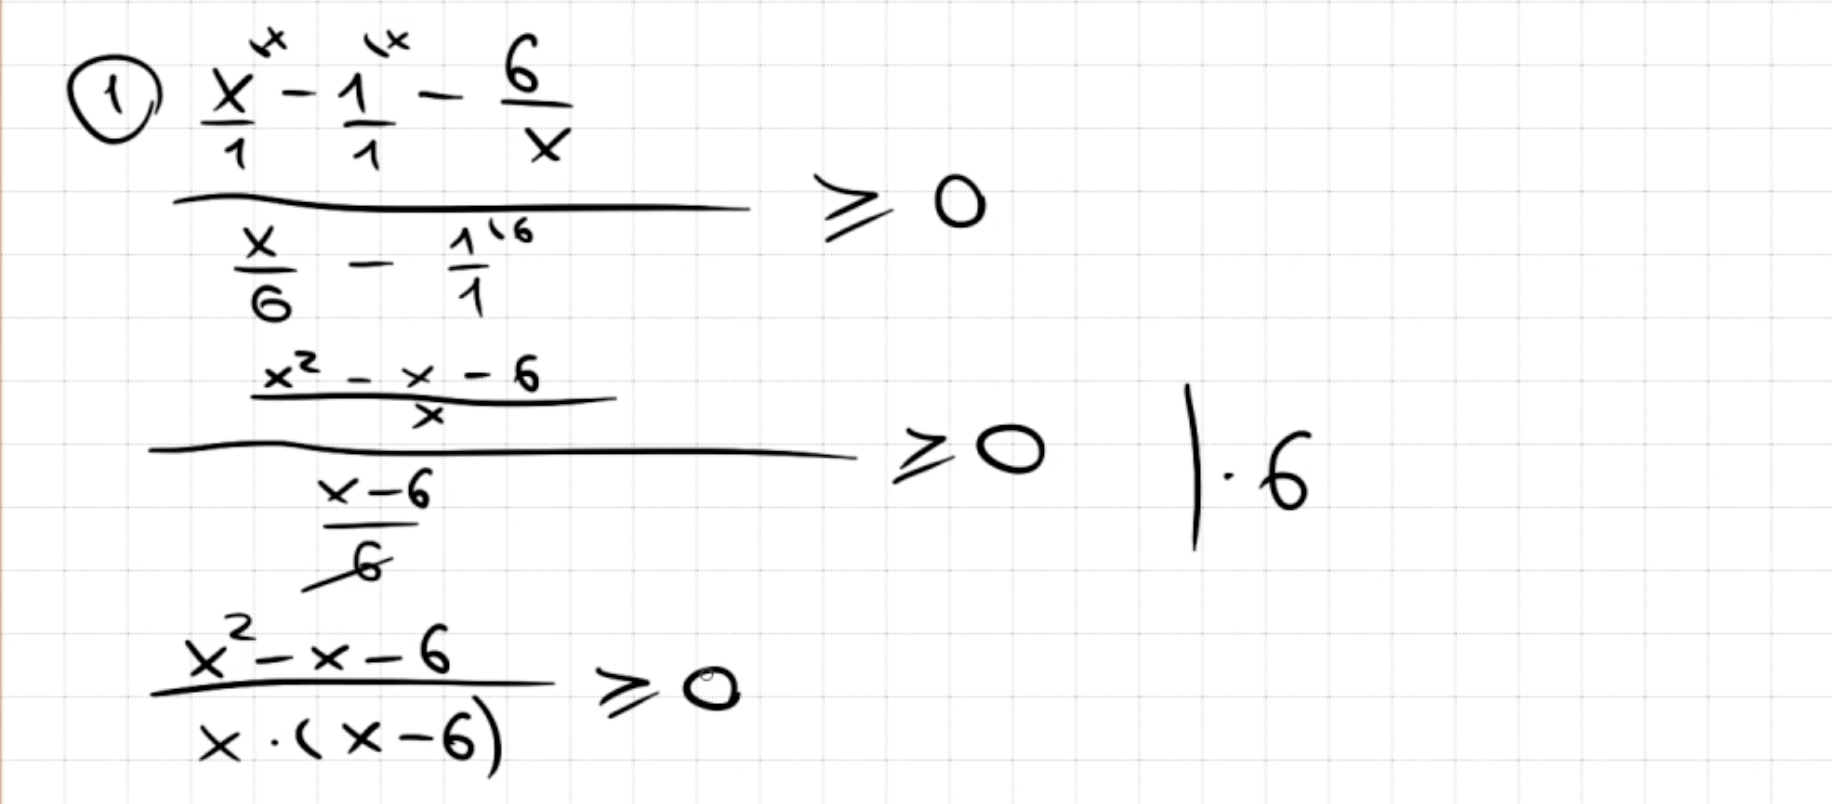 ① x/1 (x - 1/1 (x - 6/x
x/6 - 1/1 (6
≥ 0
x² - x - 6
x
x - 6
6
≥ 0 | · 6
x² - x - 6
x · (x - 6)
≥ 0